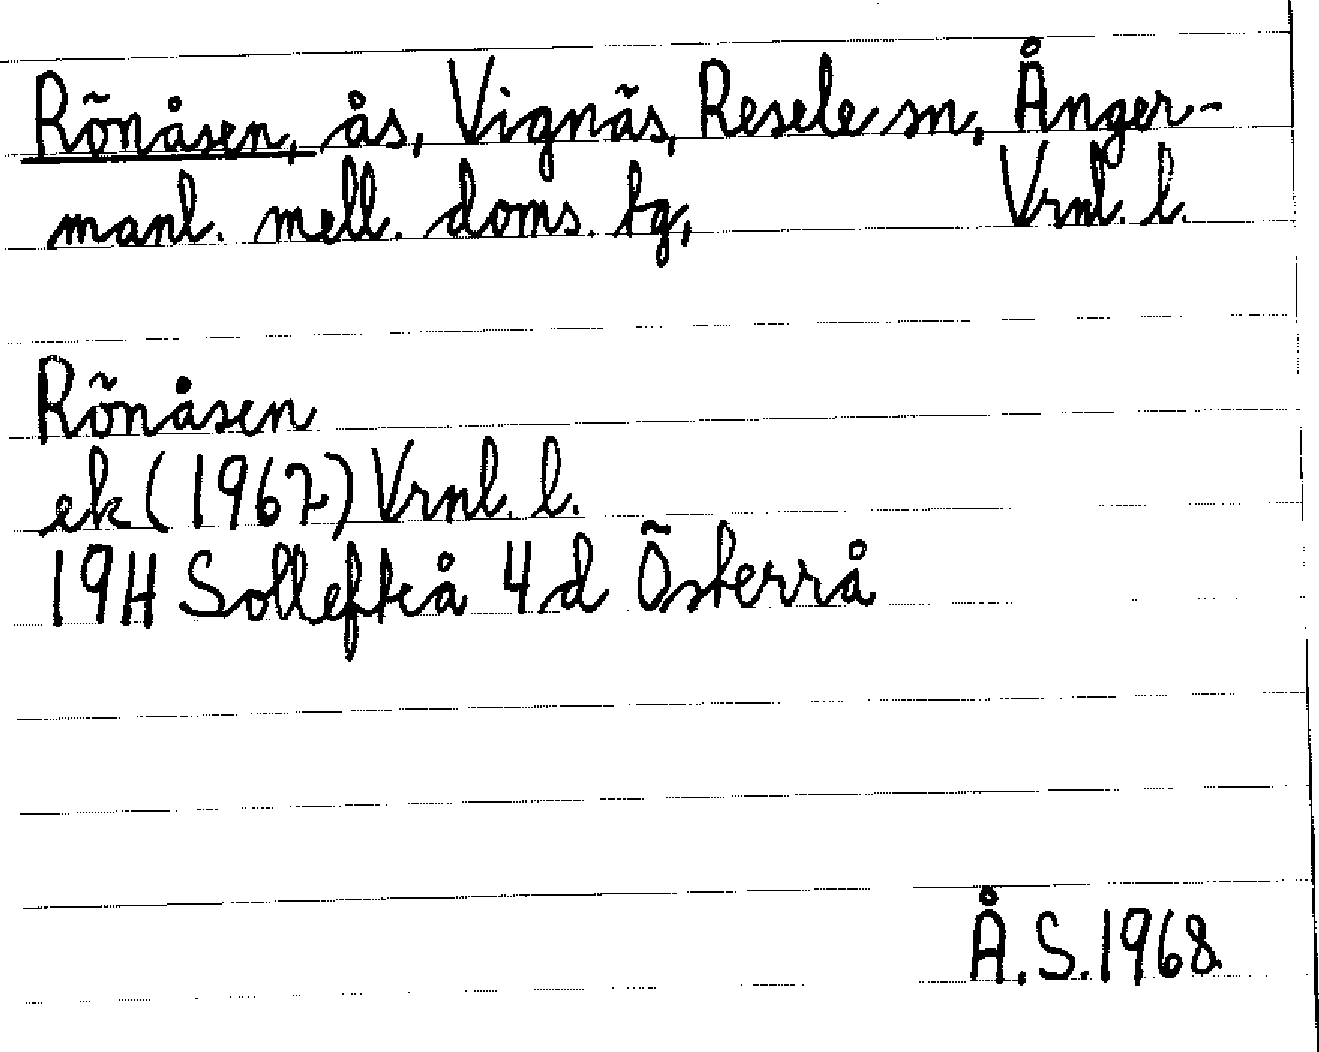 Rõnåsen, ås, Vignãs, Resele sn, Ånger-
manl. mell. doms. tg, Vrnl. l.
Rõnåsen
ek (1967) Vrnl. l.
19H Sollefteå 4 d Õsterrå
Å.S.1968